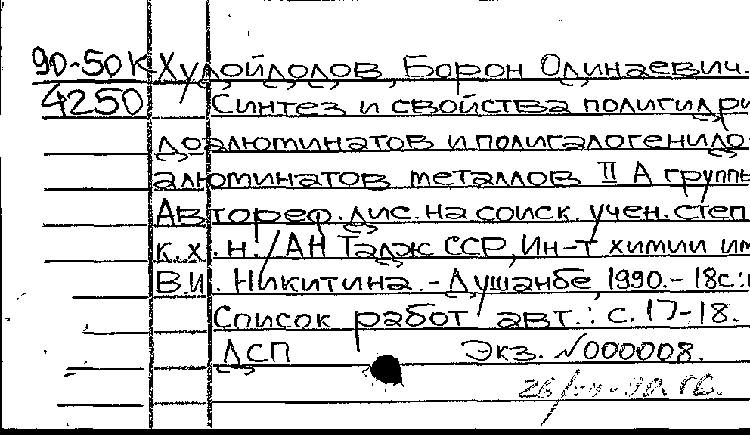 90-50К Худойдодов, Борон Одинаевич.
4250 Синтез и свойства полигидри
доалюминатов и полигалогенидо
алюминатов металлов II А группы
Автореф. дис. на соиск. учен. степ
к.х.н. / АН Тадж ССР, Ин-т химии им
В.И. Никитина. - Душанбе, 1990. - 18с.:
Список работ авт.: с. 17-18.
ДСП Экз. №000008.